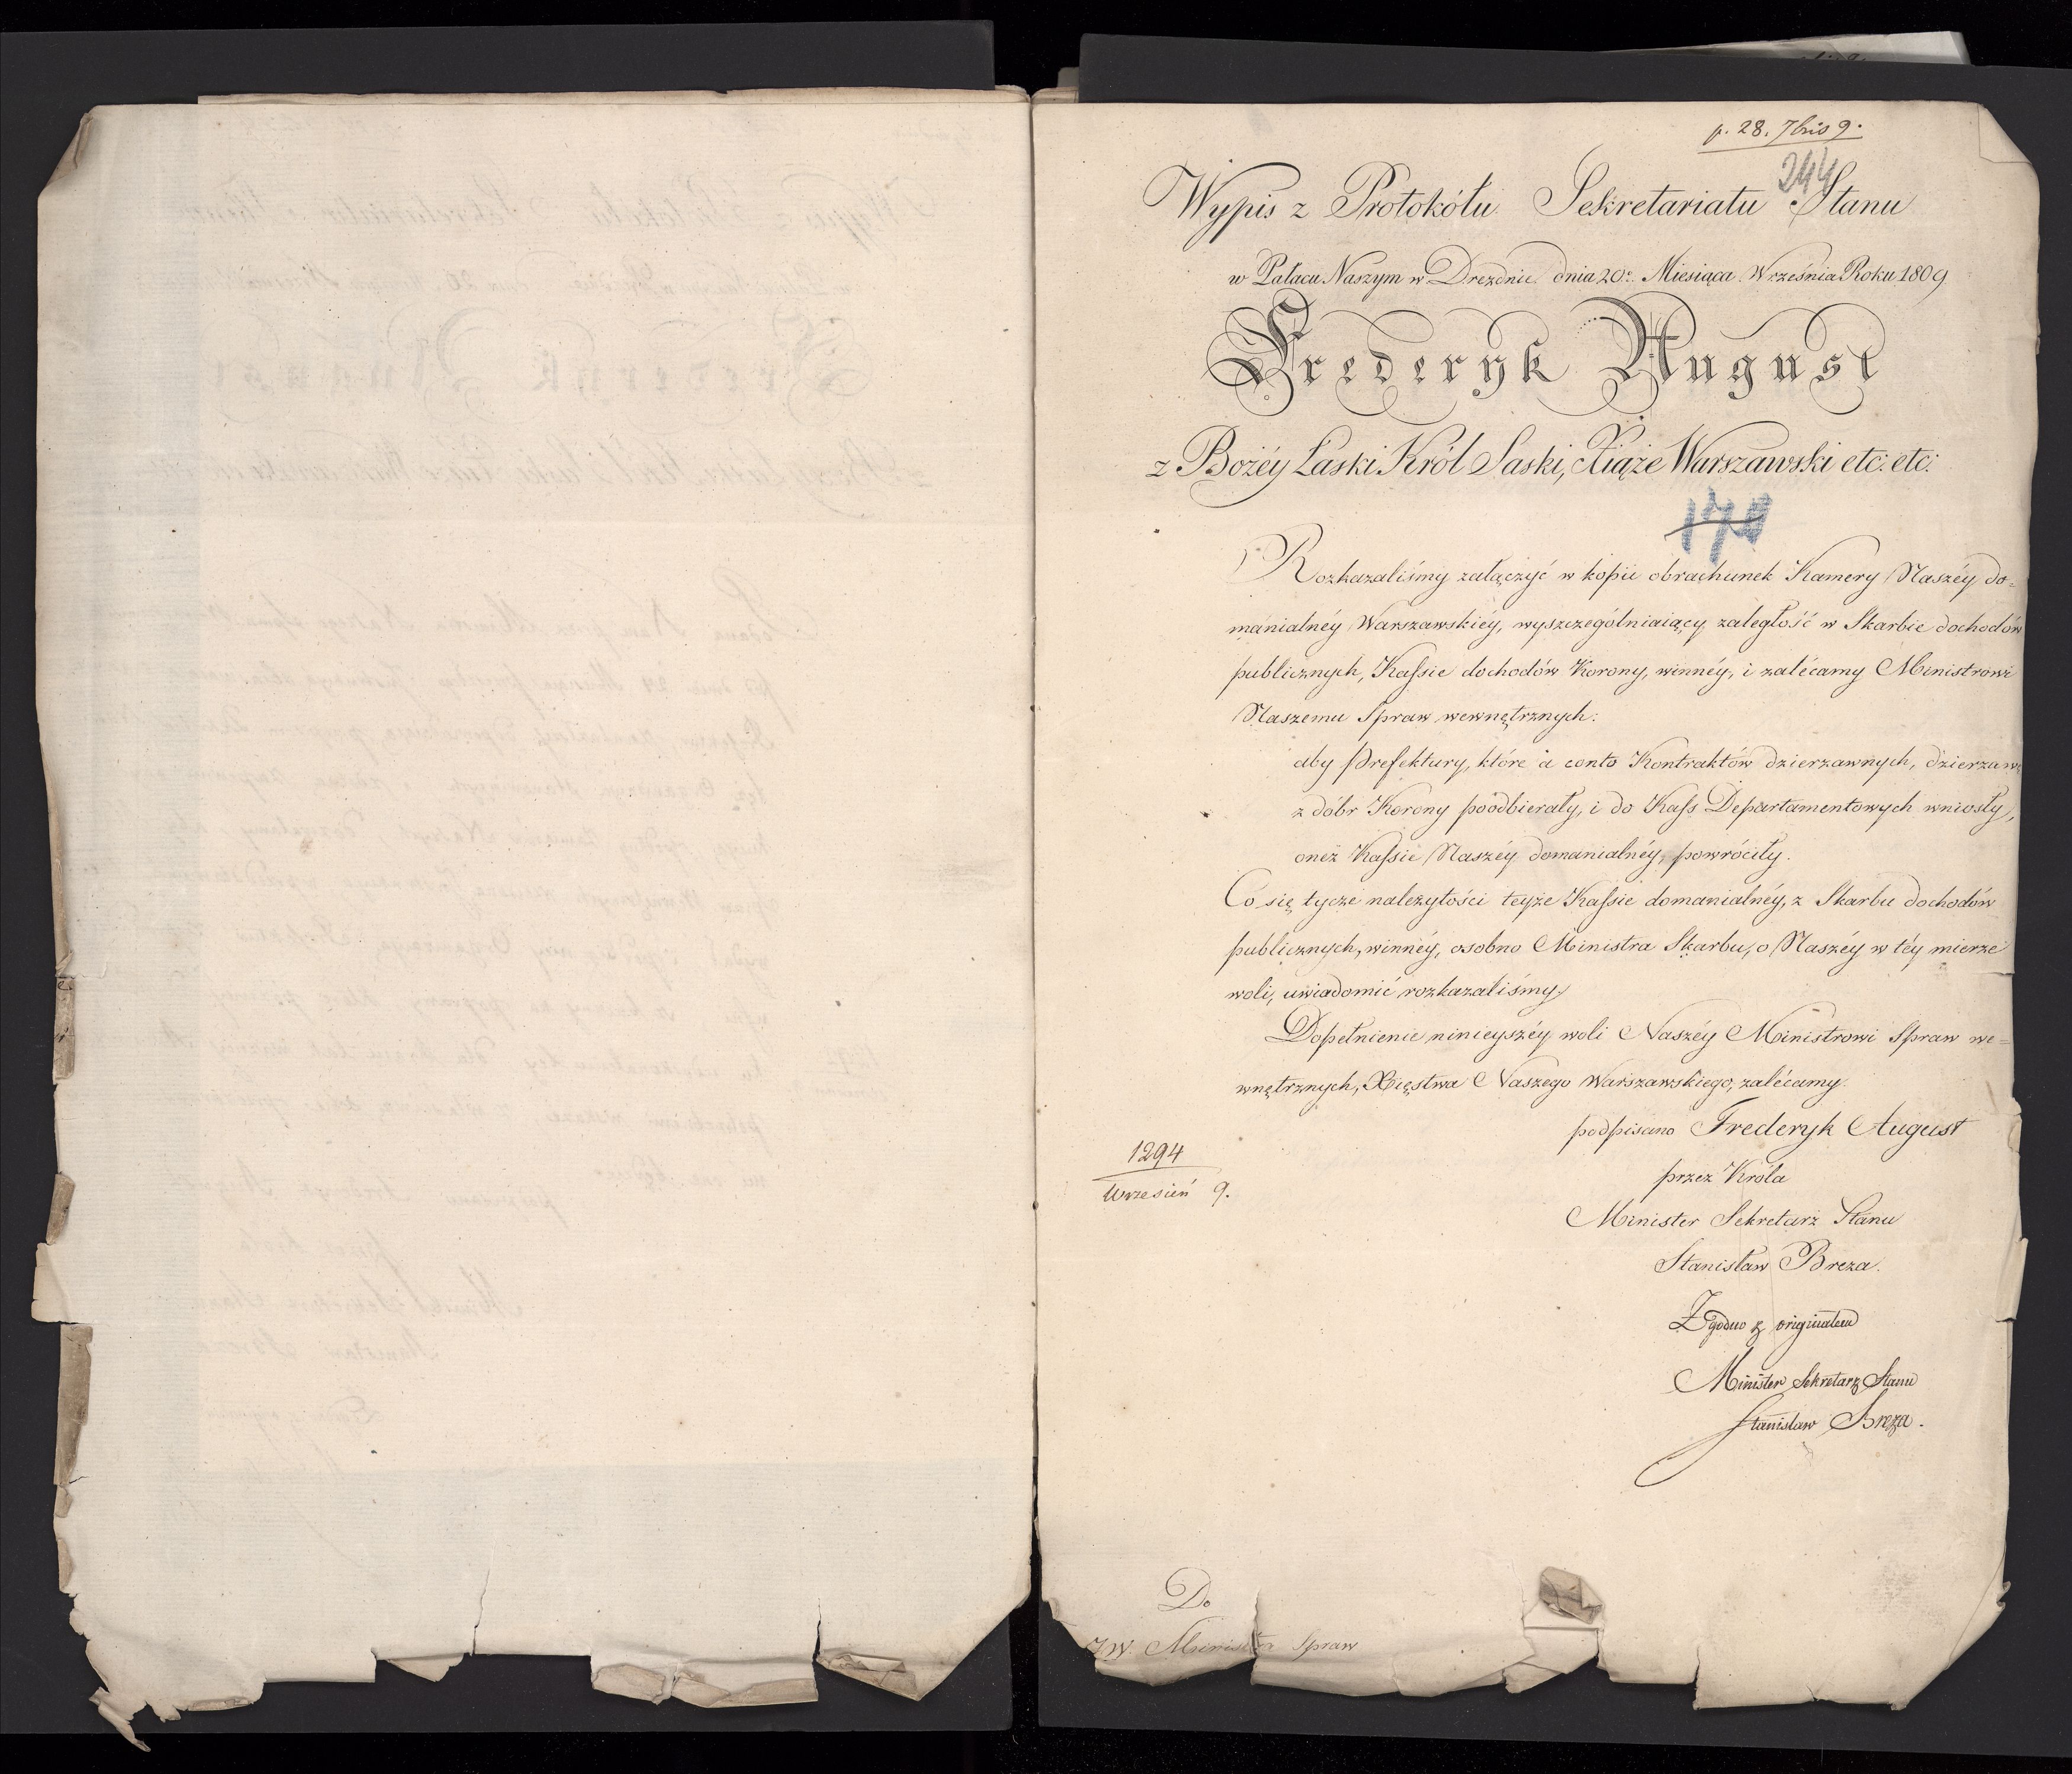 p. 28. 7bris 9.
244
Wypis z Protokółu Sekretariatu Stanu
w Pałacu Naszym w Dreznie dnia 20o. Miesiąca Września Roku 1809
Frederyk August
z Bożéy Łaski Król Saski, Xiąże Warszawski etc: etc:
Rozkazaliśmy załączyć w kopii obrachunek Kamery Naszéy do=
manialnéy Warszawskiéy, wyszczególniaiący zaległość w Skarbie dochodów
publicznych, Kassie dochodów Korony, winnéy, i zalécamy Ministrowi
Naszemu Spraw wewnętrznych:
aby Prefektury, które à conto Kontraktów dzierzawnych, dzierzawę
z dóbr Korony poodbierały, i do Kass Departamentowych wniosły,
oneż Kassie Naszéy domanialnéy, powróciły.
Co się tycze należytości teyże Kassie domanialnéy, z Skarbu dochodów
publicznych, winnéy, osobno Ministra Skarbu, o Naszéy w téy mierze
woli, uwiadomić rozkazaliśmy.
Dopełnienie ninieyszéy woli Naszéy Ministrowi Spraw we=
wnętrznych, Xięstwa Naszego Warszawskiego, zalécamy.
podpisano Frederyk August
1294
Wrzesień 9.
przez Króla
Minister Sekretarz Stanu
Stanisław Breza.
Zgodno z originałem
Minister Sekretarz Stanu
Stanisław Breza.
Do
JW. Ministra Spraw